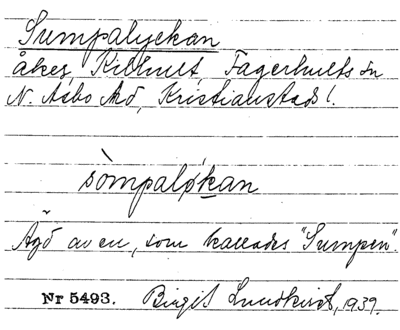 Sumpalyckan
åker, Kilhult, Fagerhults sn
N. Åsbo hd, Kristianstads l.
sòmpaløkan
Ägd av en, som kallades "Sumpen".
Nr 5493. Birgit Lundkvist, 1939.